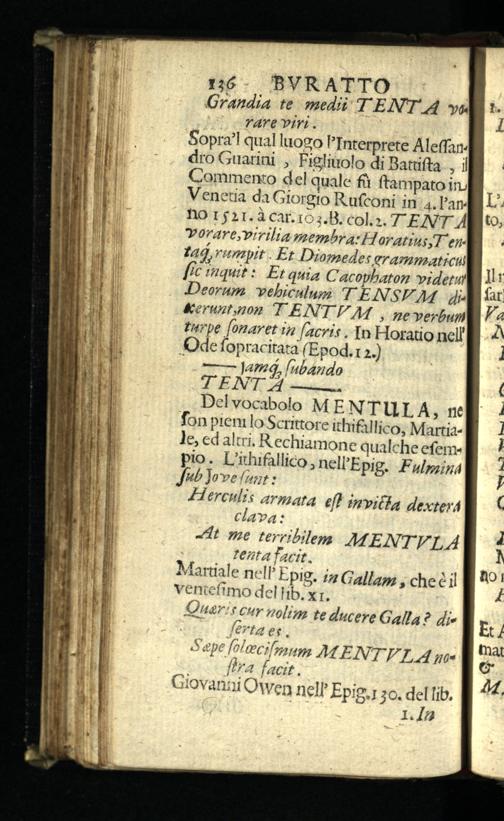 136 BVRATTO
Grandia te medii TENTA vo-
rare viri.
Sopra'l qual luogo l'Interprete Alessan-
dro Guarini, Figliuolo di Battista, il
Commento del quale fù stampato in
Venetia da Giorgio Rusconi in 4. l'an-
no 1521. à car. 103. B. col. 2. TENTA
vorare, virilia membra: Horatius, Ten-
taq́, rumpit. Et Diomedes grammaticus
sic inquit: Et quia Cacophaton videtur
Deorum vehiculum TENSVM di-
xerunt, non TENTVM, ne verbum
turpe sonaret in sacris. In Horatio nell'
Ode sopracitata (Epod. 12.)
—— Jamq́, subando
TENTA ——
Del vocabolo MENTULA, ne
son pieni lo Scrittore ithifallico, Martia-
le, ed altri. Rechiamone qualche esem-
pio. L'ithifallico, nell'Epig. Fulmina
sub Jove sunt:
Herculis armata est invicta dextera
clava:
At me terribilem MENTVLA
tenta facit.
Martiale nell'Epig. in Gallam, che è il
ventesimo del lib. XI.
Quæris cur nolim te ducere Galla? di-
serta es.
Sæpe solœcismum MENTVLA no-
stra facit.
Giovanni Owen nell' Epig. 130. del lib.
1. In